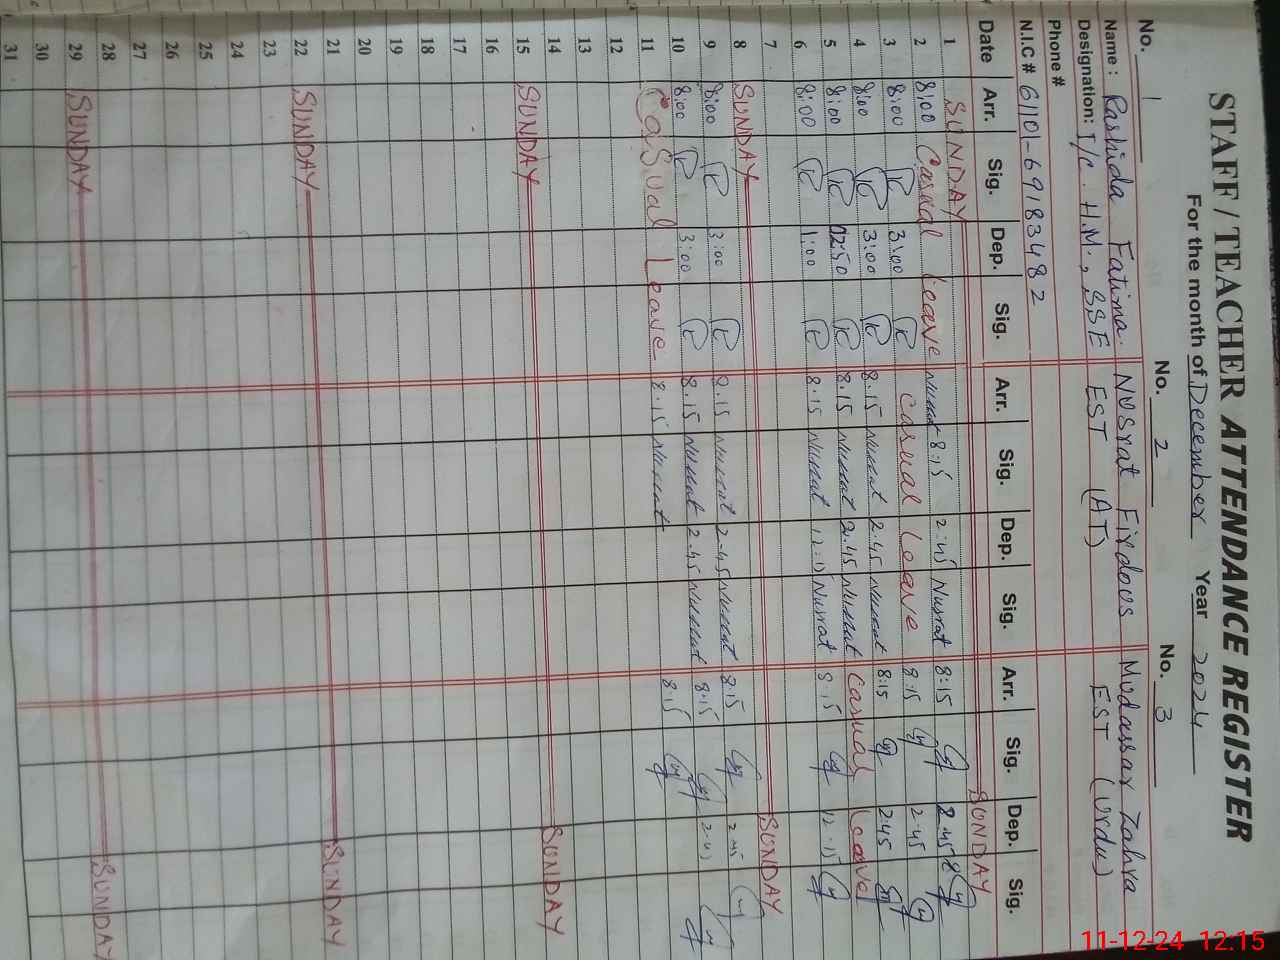 STAFF / TEACHER ATTENDANCE REGISTER
For the month of December Year 2024
No. 1 No. 2 No. 3
Name : Rashida Fatima. Nusrat Firdous Mudassar Zahra
Designation: I/C. H.M., SSE EST (AT) EST (Urdu)
Phone #
N.I.C # 61101-6918348 2
Date Arr. Sig. Dep. Sig. Arr. Sig. Dep. Sig. Arr. Sig. Dep. Sig.
1 SUNDAY SUNDAY
2 8:00 Casual Leave Nusrat 8:15 2:45 Nusrat 8:15 2:45
3 8:00 3:00 Casual Leave 8:15 2:45
4 8:00 3:00 8.15 Nusrat 2.45 Nusrat 8:15 2:45
5 8:00 02:50 8.15 Nusrat 2.45 Nusrat Casual Leave
6 8:00 1:00 8.15 Nusrat 12:15 Nusrat 8:15 12:15
7
8 SUNDAY SUNDAY
9 8:00 3:00 8.15 Nusrat 2.45 Nusrat 8:15 2:45
10 8:00 3:00 8.15 Nusrat 2.45 Nusrat 8:15 2:45
11 Casual Leave 8.15 Nusrat 8:15
12
13
14
15 SUNDAY SUNDAY
16
17
18
19
20
21
22 SUNDAY SUNDAY
23
24
25
26
27
28
29 SUNDAY SUNDAY
30
31
11-12-24 12:15